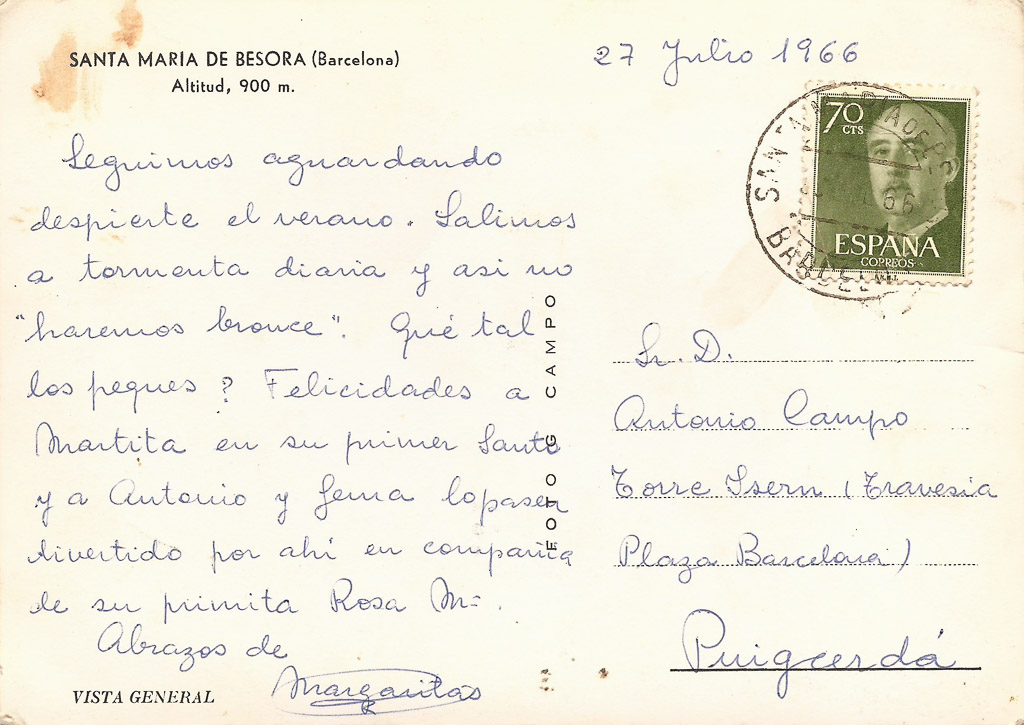 SANTA MARIA DE BESORA (Barcelona)
Altitud, 900 m.
27 Julio 1966
70
CTS
ESPAÑA
CORREOS
Seguimos aguardando
despierte el verano. Salimos
a tormenta diaria y asi no
"haremos bronce". Qué tal
los peques? Felicidades a
Martita en su primer Santo
y a Antonio y Gema lo pasen
divertido por ahí en compañia
de su primita Rosa Mª.
Abrazos de
Margaritas
VISTA GENERAL
FOTO G CAMPO
Sr. D.
Antonio Campo
Torre Isern (Travesia
Plaza Barcelona)
Puigcerdá